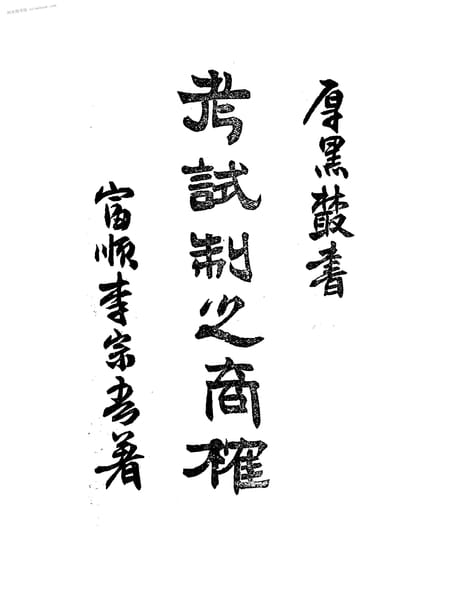 厚黑叢書
考試制之商榷
富順李宗吾著